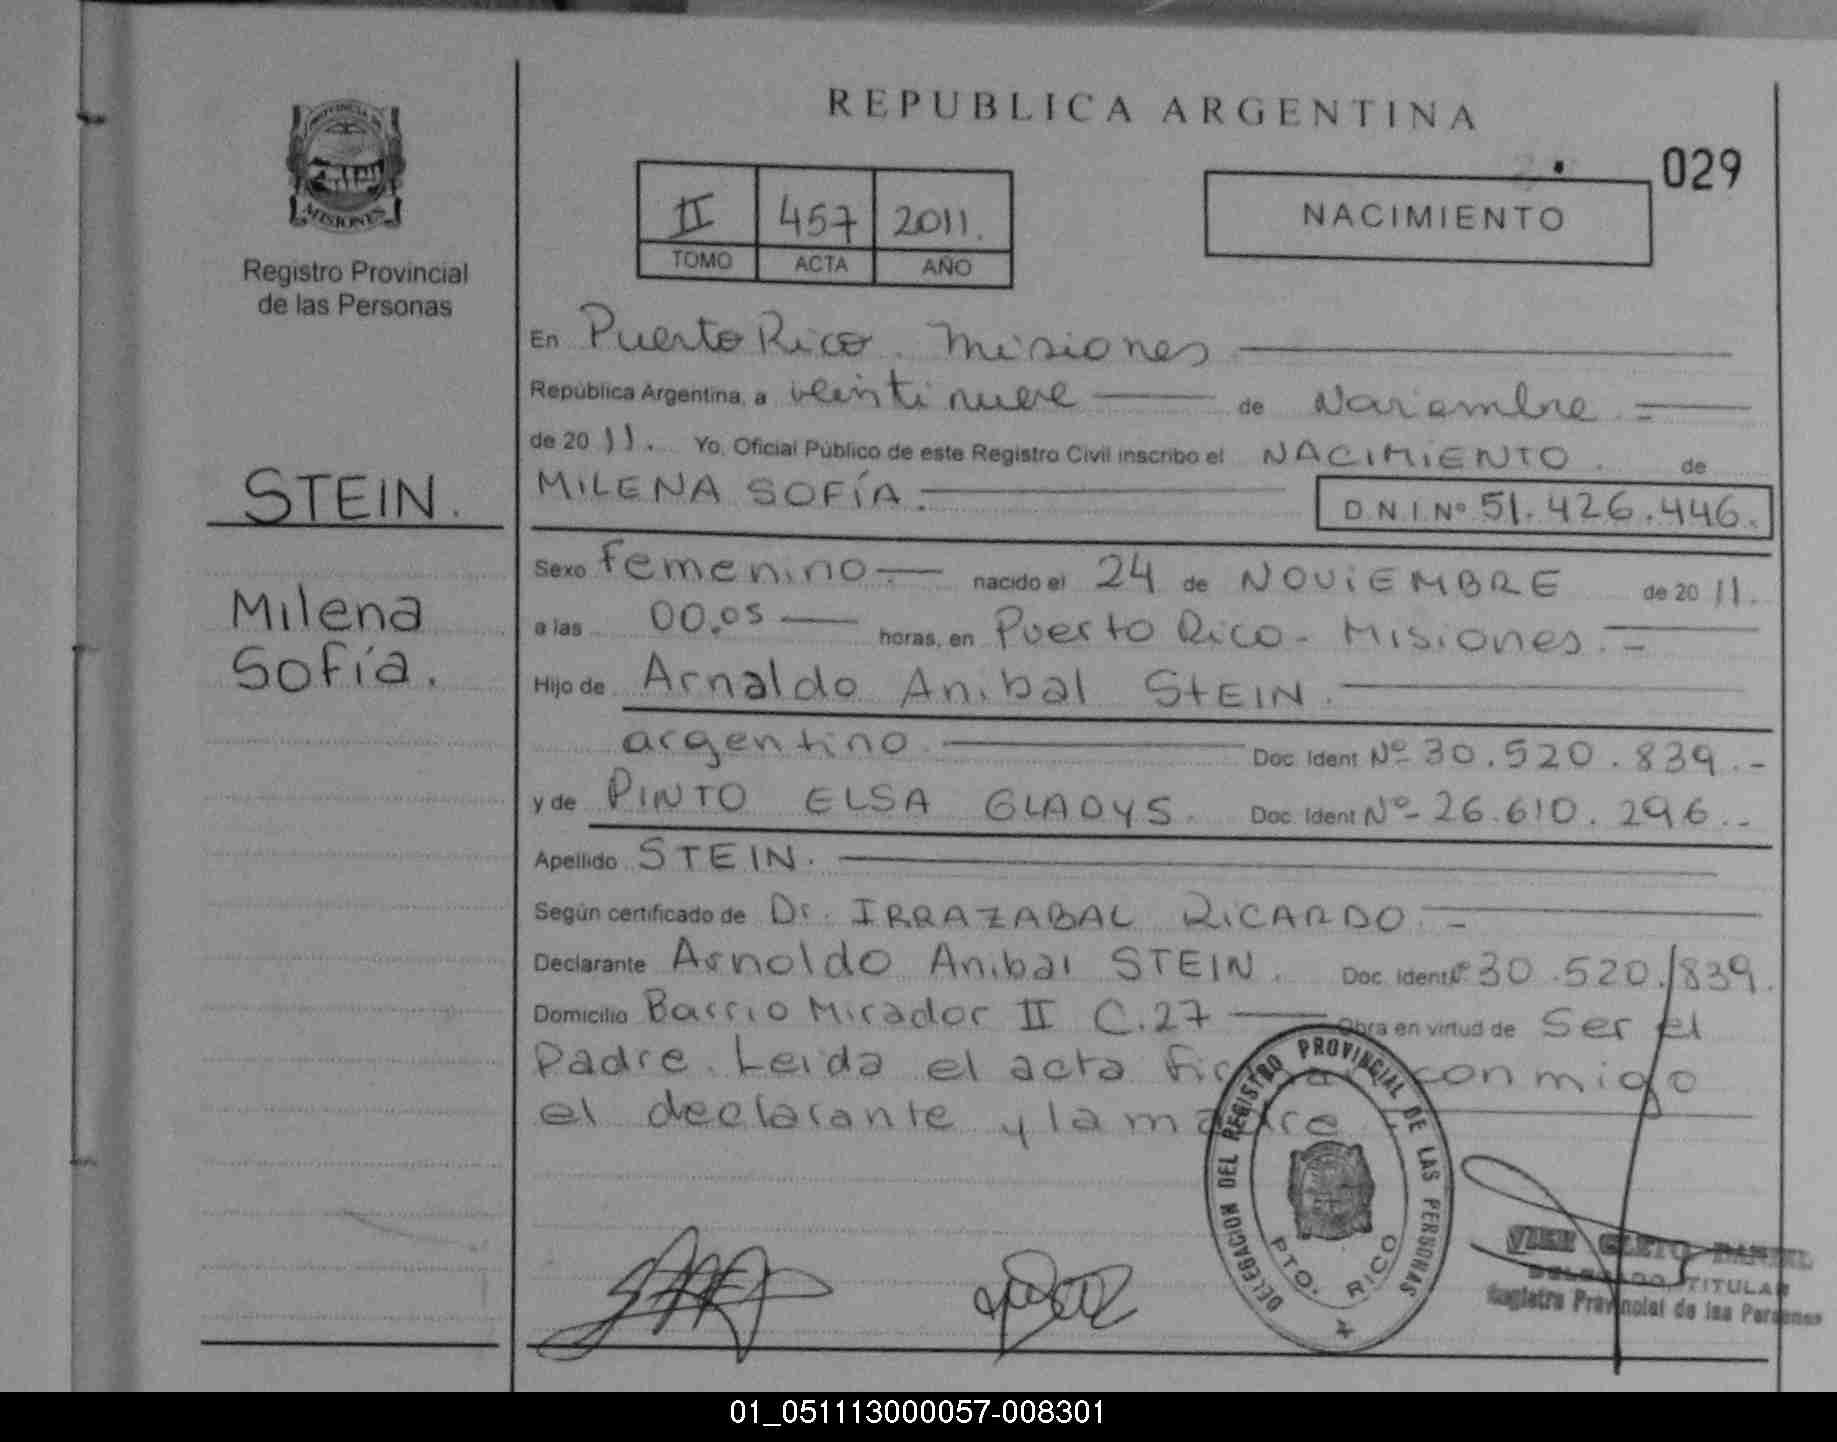 REPUBLICA ARGENTINA
029
PROVINCIA DE
MISIONES
Registro Provincial
de las Personas
II 457 2011.
TOMO ACTA AÑO
NACIMIENTO
En Puerto Rico. Misiones
República Argentina, a veintinueve de Noviembre.=
de 2011. Yo, Oficial Público de este Registro Civil inscribo el NACIMIENTO. de
STEIN.
MILENA SOFÍA. D.N.I. Nº 51.426.446.
Sexo Femenino.- nacido el 24 de NOVIEMBRE de 2011.
Milena
Sofía.
a las 00.05 horas, en Puerto Rico- Misiones.-
Hijo de Arnaldo Anibal STEIN.
argentino. Doc. Ident Nº 30.520.839.-
y de PINTO ELSA GLADYS. Doc. Ident Nº- 26.610.296.-
Apellido STEIN.
Según certificado de Dr. IRRAZABAL RICARDO.-
Declarante Arnoldo Anibal STEIN. Doc. Ident Nº 30.520.839.
Domicilio Barrio Mirador II C.27 Obra en virtud de Ser el
Padre. Leida el acta conmigo
el declarante y la madre.
DELEGACION DEL REGISTRO PROVINCIAL DE LAS PERSONAS
PTO. RICO
CLETO
DELEGADO TITULAR
Registro Provincial de las Personas
01_051113000057-008301